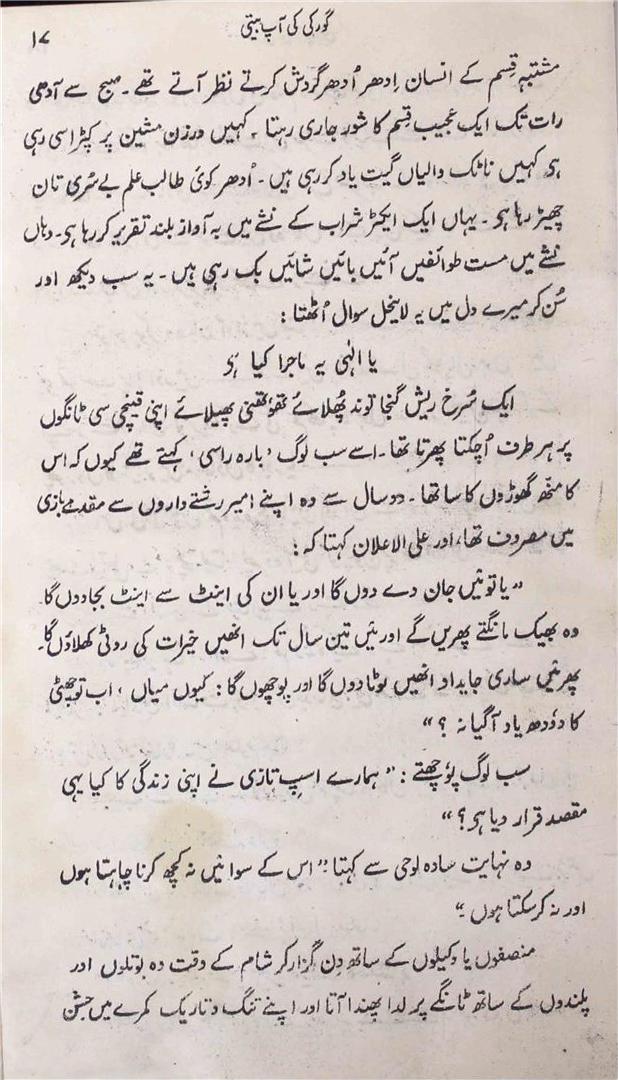 گورکی کی آپ بیتی
۱۷
مشتبہ قِسم کے انسان اِدھر اُدھر گردش کرتے نظر آتے تھے۔ صبح سے آدھی
رات تک ایک عجیب قِسم کا شور جاری رہتا ۔ کہیں درزن مشین پر کپڑا سی رہی
ہی کہیں ناٹک والیاں گیت یاد کر رہی ہیں۔ اُدھر کوئی طالب علم بے سُری تان
چھیڑ رہا ہی ۔ یہاں ایک ایکٹر شراب کے نشے میں بہ آواز بلند تقریر کر رہا ہی۔ وہاں
نشے میں مست طوائفیں آئیں بائیں شائیں بک رہی ہیں ۔ یہ سب دیکھ اور
سُن کر میرے دل میں یہ لاینحل سوال اُٹھتا :
یا الٰہی یہ ماجرا کیا ہی
ایک سُرخ ریش گنجا توند پُھلائے تھوتھنی پھیلائے اپنی قینچی سی ٹانگوں
پر ہر طرف اُچکتا پھرتا تھا۔ اسے سب لوگ ' بارہ راسی ' کہتے تھے کیوں کہ اس
کا منھ گھوڑوں کا سا تھا ۔ دو سال سے وہ اپنے امیر رشتے داروں سے مقدمے بازی
میں مصروف تھا، اور علی الاعلان کہتا کہ :
” یا تو مَیں جان دے دوں گا اور یا ان کی اینٹ سے اینٹ بجا دوں گا۔
وہ بھیک مانگتے پھریں گے اور مَیں تین سال تک انھیں خیرات کی روٹی کھلاؤں گا۔
پھر مَیں ساری جایداد انھیں لوٹا دوں گا اور پوچھوں گا : کیوں میاں ، اب تو چھٹی
کا دؤدھ یاد آ گیا نہ ؟ “
سب لوگ پؤچھتے : ” ہمارے اسپِ تازی نے اپنی زندگی کا کیا یہی
مقصد قرار دیا ہی ؟ “
وہ نہایت سادہ لوحی سے کہتا ” اس کے سوا مَیں نہ کچھ کرنا چاہتا ہوں
اور نہ کر سکتا ہوں ۔“
منصفوں یا وکیلوں کے ساتھ دِن گزار کر شام کے وقت وہ بوتلوں اور
پلندوں کے ساتھ ٹانگے پر لدا پھندا آتا اور اپنے تنگ و تاریک کمرے میں جشن